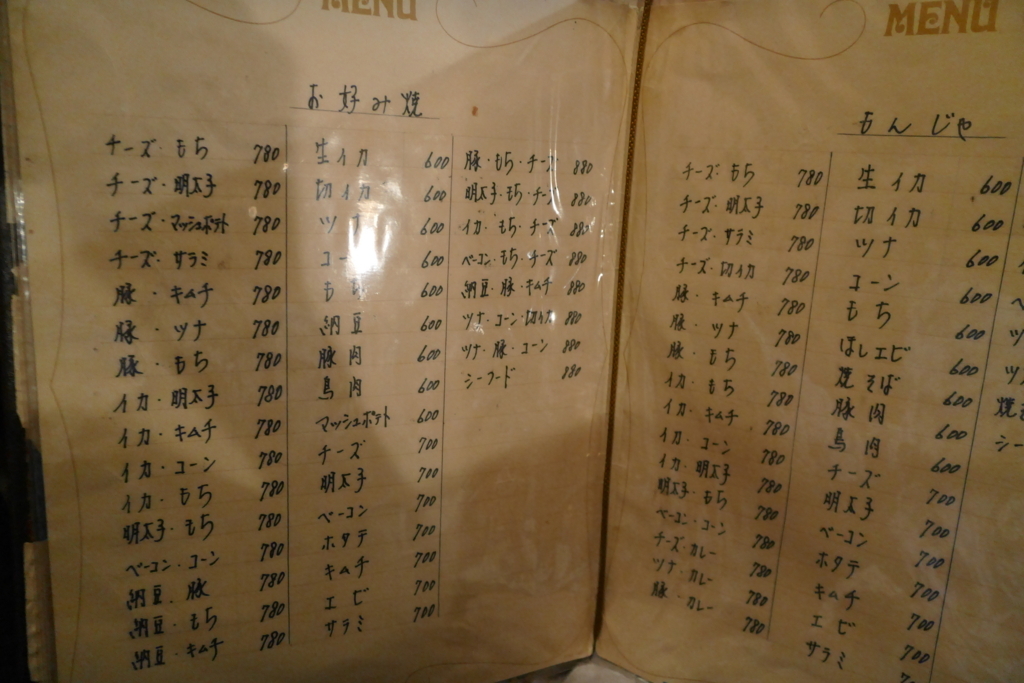 MENU
お好み焼
チーズ・もち 780
チーズ・明太子 780
チーズ・マッシュポテト 780
チーズ・サラミ 780
豚・キムチ 780
豚・ツナ 780
豚・もち 780
イカ・明太子 780
イカ・キムチ 780
イカ・コーン 780
イカ・もち 780
明太子・もち 780
ベーコン・コーン 780
納豆・豚 780
納豆・もち 780
納豆・キムチ 780
生イカ 600
切イカ 600
ツナ 600
コーン 600
もち 600
納豆 600
豚肉 600
鳥肉 600
マッシュポテト 600
チーズ 700
明太子 700
ベーコン 700
ホタテ 700
キムチ 700
エビ 700
サラミ 700
豚・もち・チーズ 880
明太子・もち・チーズ 880
イカ・もち・チーズ 880
ベーコン・もち・チーズ 880
納豆・豚・キムチ 880
ツナ・コーン・切イカ 880
ツナ・豚・コーン 880
シーフード 880
MENU
もんじゃ
チーズ・もち 780
チーズ・明太子 780
チーズ・サラミ 780
チーズ・切イカ 780
豚・キムチ 780
豚・ツナ 780
豚・もち 780
イカ・もち 780
イカ・キムチ 780
イカ・コーン 780
イカ・明太子 780
明太子・もち 780
ベーコン・コーン 780
チーズ・カレー 780
ツナ・カレー 780
豚・カレー 780
生イカ 600
切イカ 600
ツナ 600
コーン 600
もち 600
ほしエビ 600
焼そば 600
豚肉 600
鳥肉 600
チーズ 700
明太子 700
ベーコン 700
ホタテ 700
キムチ 700
エビ 700
サラミ